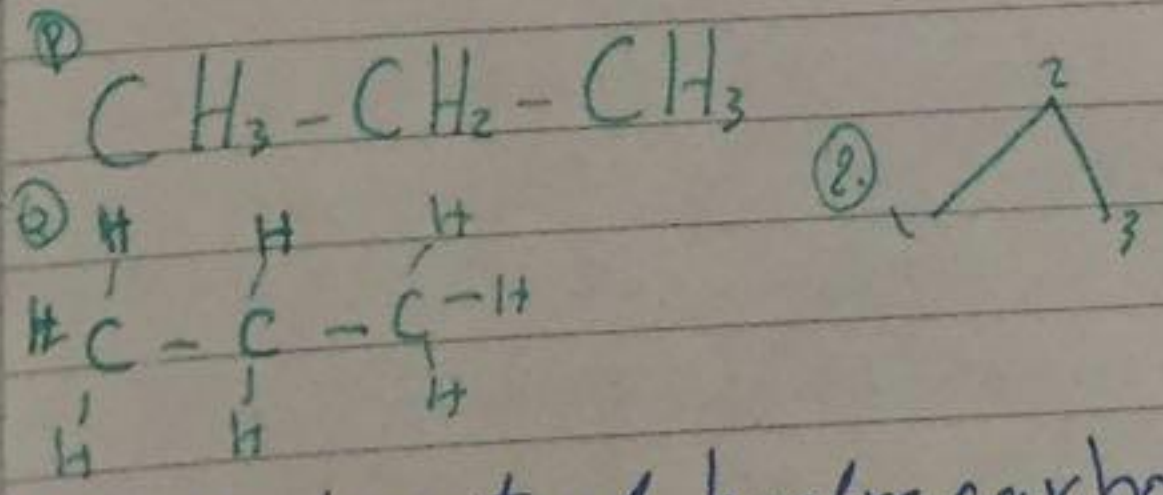 ① CH₃ - CH₂ - CH₃
② H H H
H C - C - C - H
H H H
②. 1 2 3